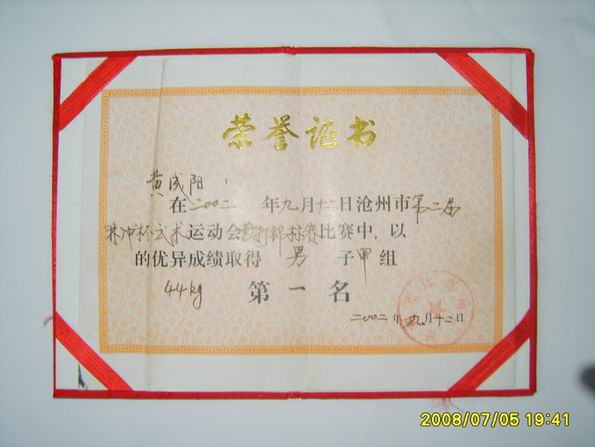 荣誉证书
黄成阳：
在二00二年九月十二日沧州市第二届
林冲杯武术运动会散打锦标赛比赛中，以
的优异成绩取得男子甲组
44kg 第一名
二00二年九月十二日
2008/07/05 19:41